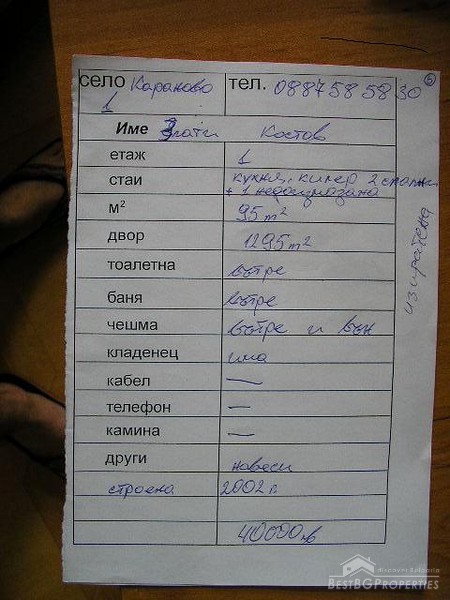 село Караново тел. 0887585830 6
1
Име Злати Костов
етаж 1
стаи кухня, килер 2 спални
+ 1 недоизмазана
м² 95 m²
двор 1295 m²
тоалетна вътре
баня вътре
чешма вътре и вън
кладенец има
кабел —
телефон —
камина —
други навеси
строена 2002 г.
40000 лв
изпратена
BESTBGPROPERTIES